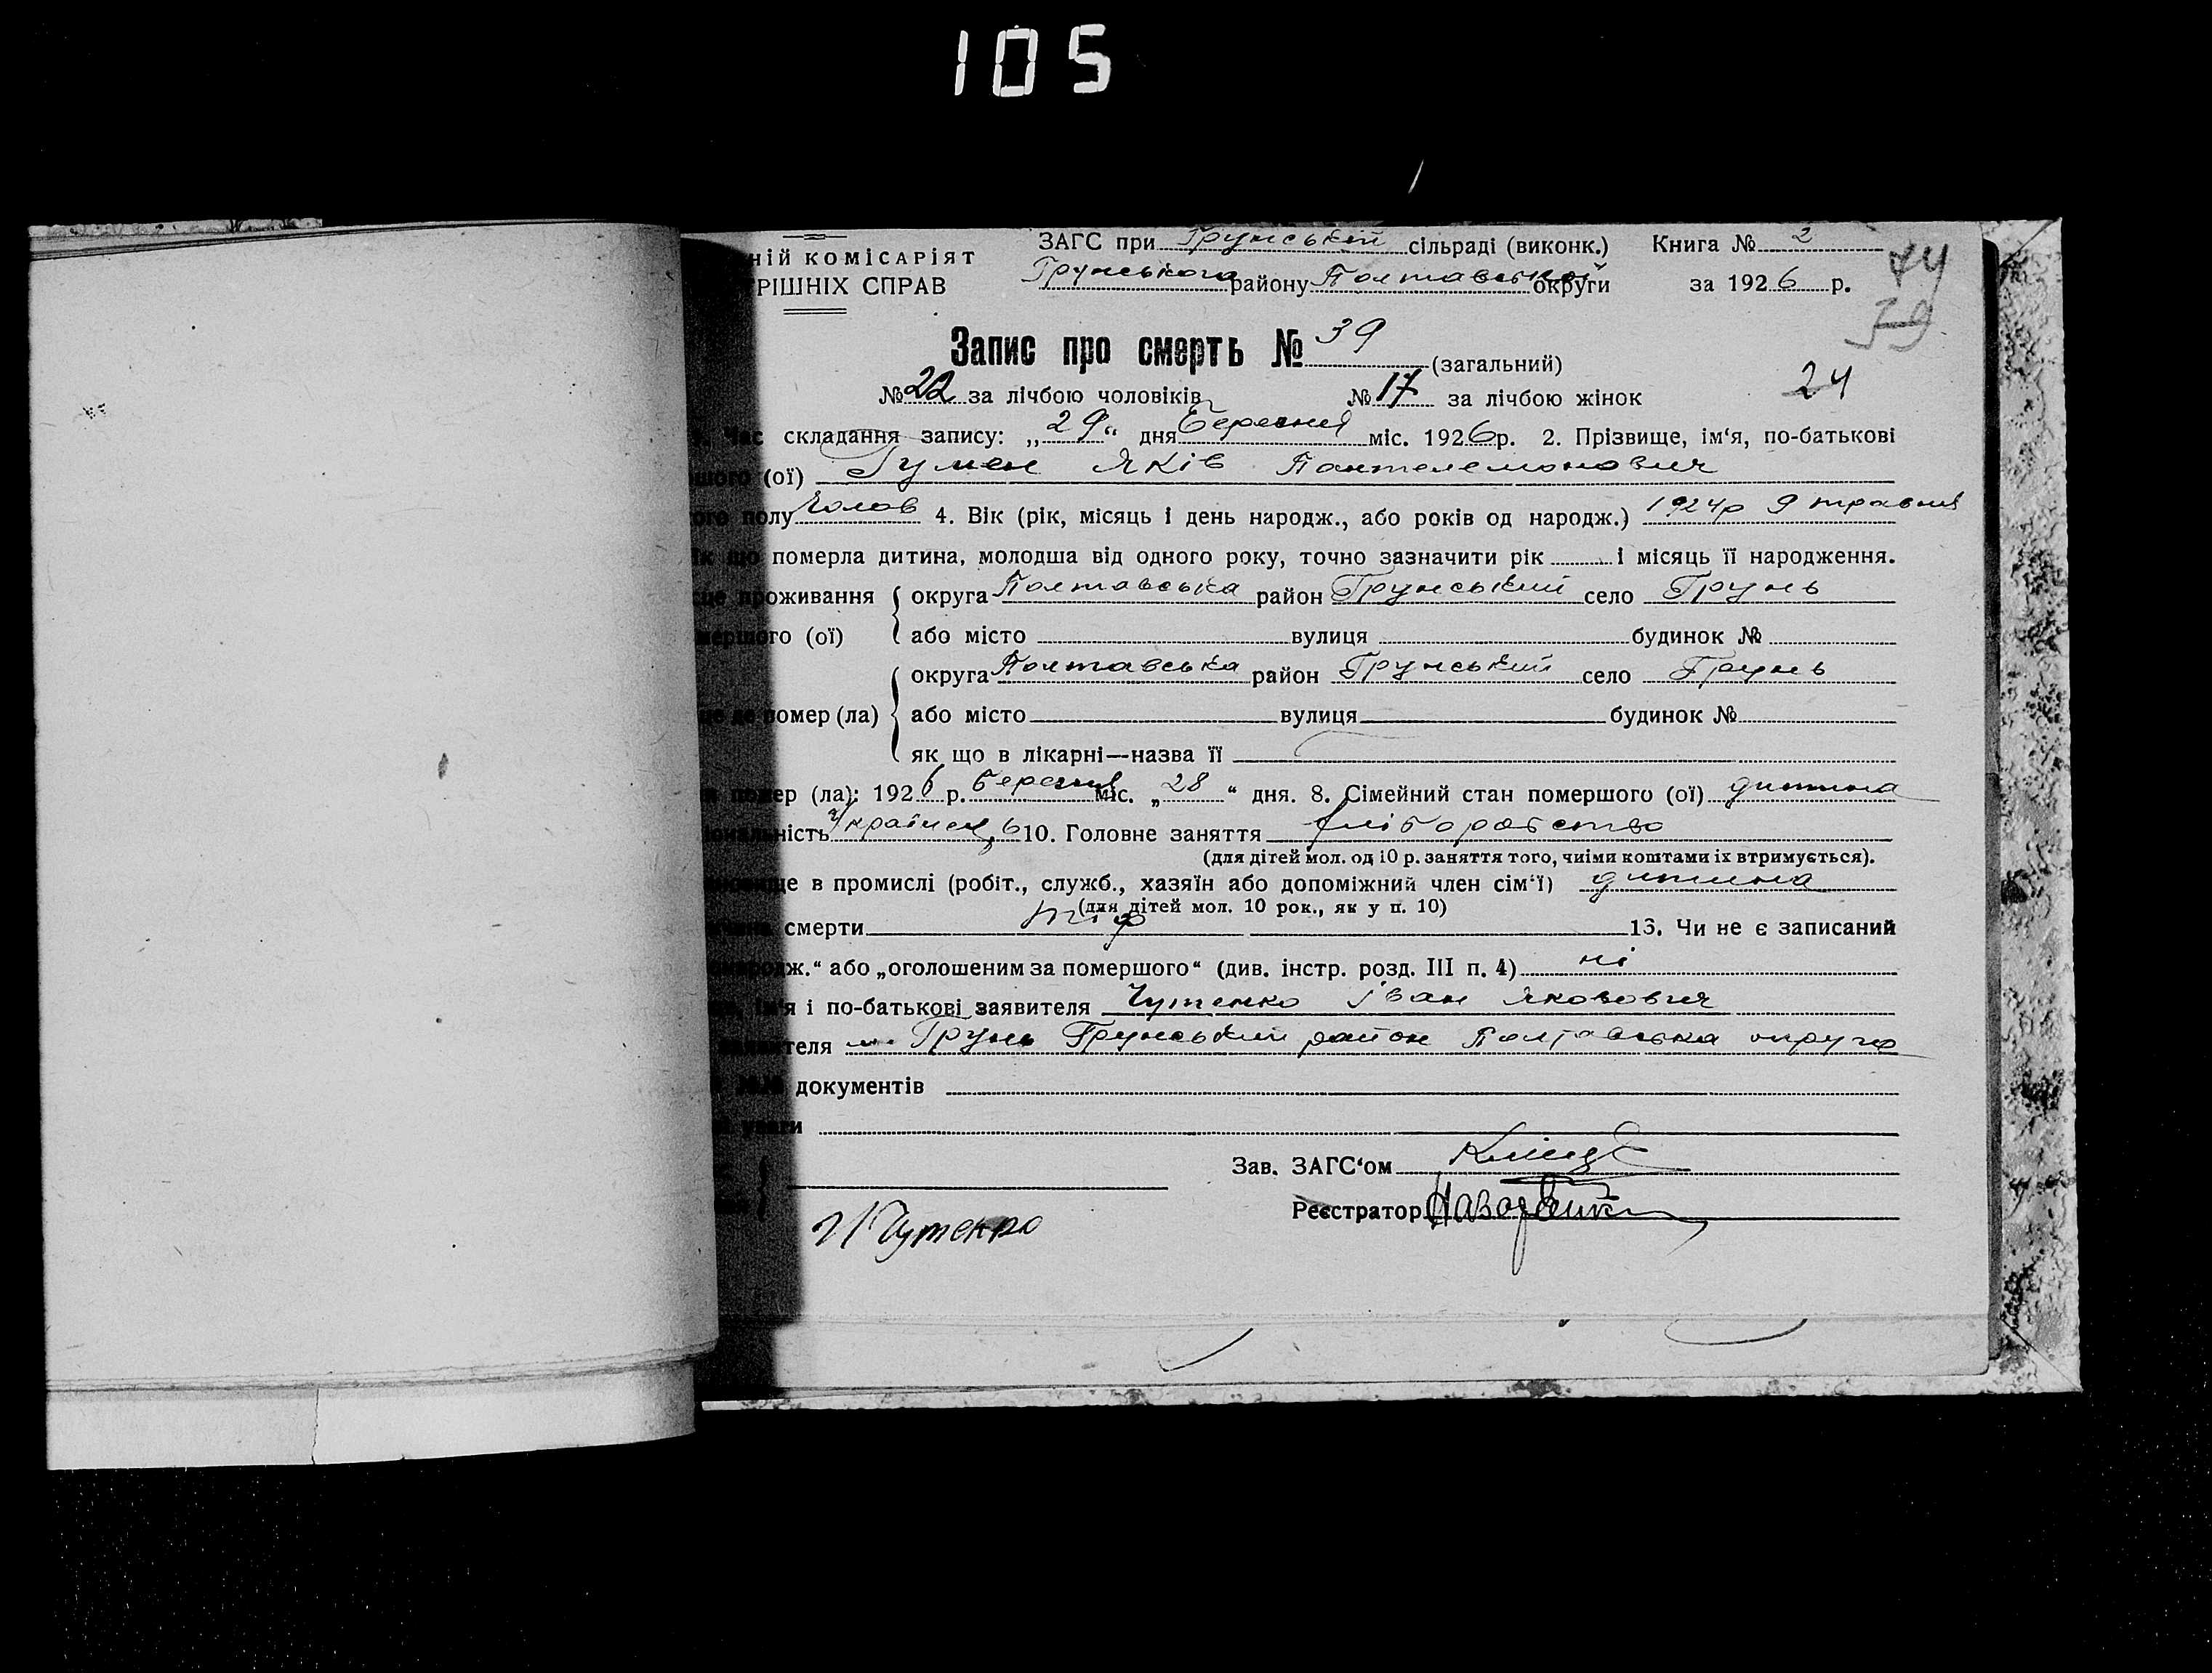 105
ній комісаріят
рішніх справ
ЗАГС при Грунській сільраді (виконк.) Книга № 2
Грунського району Полтавської округи за 1926 р.
74
39
Запис про смерть № 39 (загальний)
№ 22 за лічбою чоловіків № 17 за лічбою жінок
24
Час складання запису: „29“ дня Березня міс. 1926 р. 2. Прізвище, ім‘я, по-батькові
шого (ої) Гумен Яків Пантелемонович
ого полу Чолов 4. Вік (рік, місяць і день народж., або років од народж.) 1924р 9 травня
як що померла дитина, молодша від одного року, точно зазначити рік і місяць її народження.
сце проживання округа Полтавська район Грунський село Грунь
мершого (ої) або місто вулиця будинок №
округа Полтавська район Грунський село Грунь
це де помер (ла) або місто вулиця будинок №
як що в лікарні—назва її
помер (ла): 1926 р. Березня міс. „28“ дня. 8. Сімейний стан помершого (ої) дитина
іональність Українець 10. Головне заняття хліборобство
(для дітей мол. од 10 р. заняття того, чиїми коштами їх втримується).
новище в промислі (робіт., служб., хазяїн або допоміжний член сім‘ї) дитина
(для дітей мол. 10 рок., як у п. 10)
смерти тіф 13. Чи не є записаний
народж.“ або „оголошеним за помершого“ (див. інстр. розд. III п. 4) ні
ім‘я і по-батькові заявителя Чутенко Іван Якович
заявителя Грунь Грунський район Полтавська округа
документів
уваги
Зав. ЗАГС‘ом
Реєстратор
И Чутенко